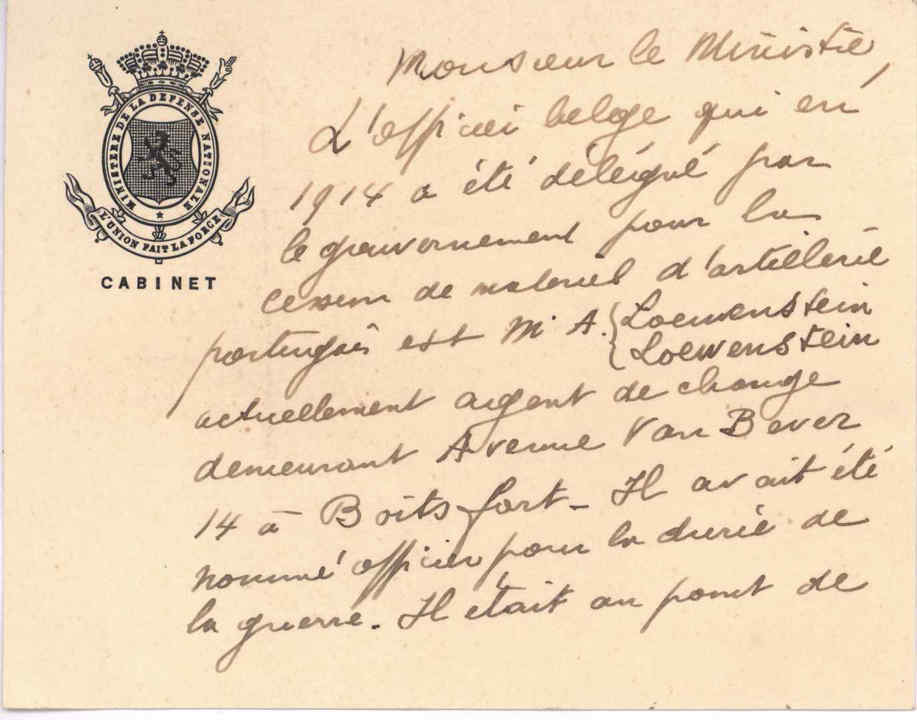 MINISTERE DE LA DEFENSE NATIONALE
L'UNION FAIT LA FORCE
CABINET
Monsieur le Ministre,
L'officier belge qui en
1914 a été délégué par
le gouvernement pour la
cession de matériel d'artillerie
portugais est Mr A. { Loewenstein
{ Loewenstein
actuellement agent de change
demeurant Avenue Van Bever
14 à Boitsfort - Il avait été
nommé officier pour la durée de
la guerre. Il était au point de